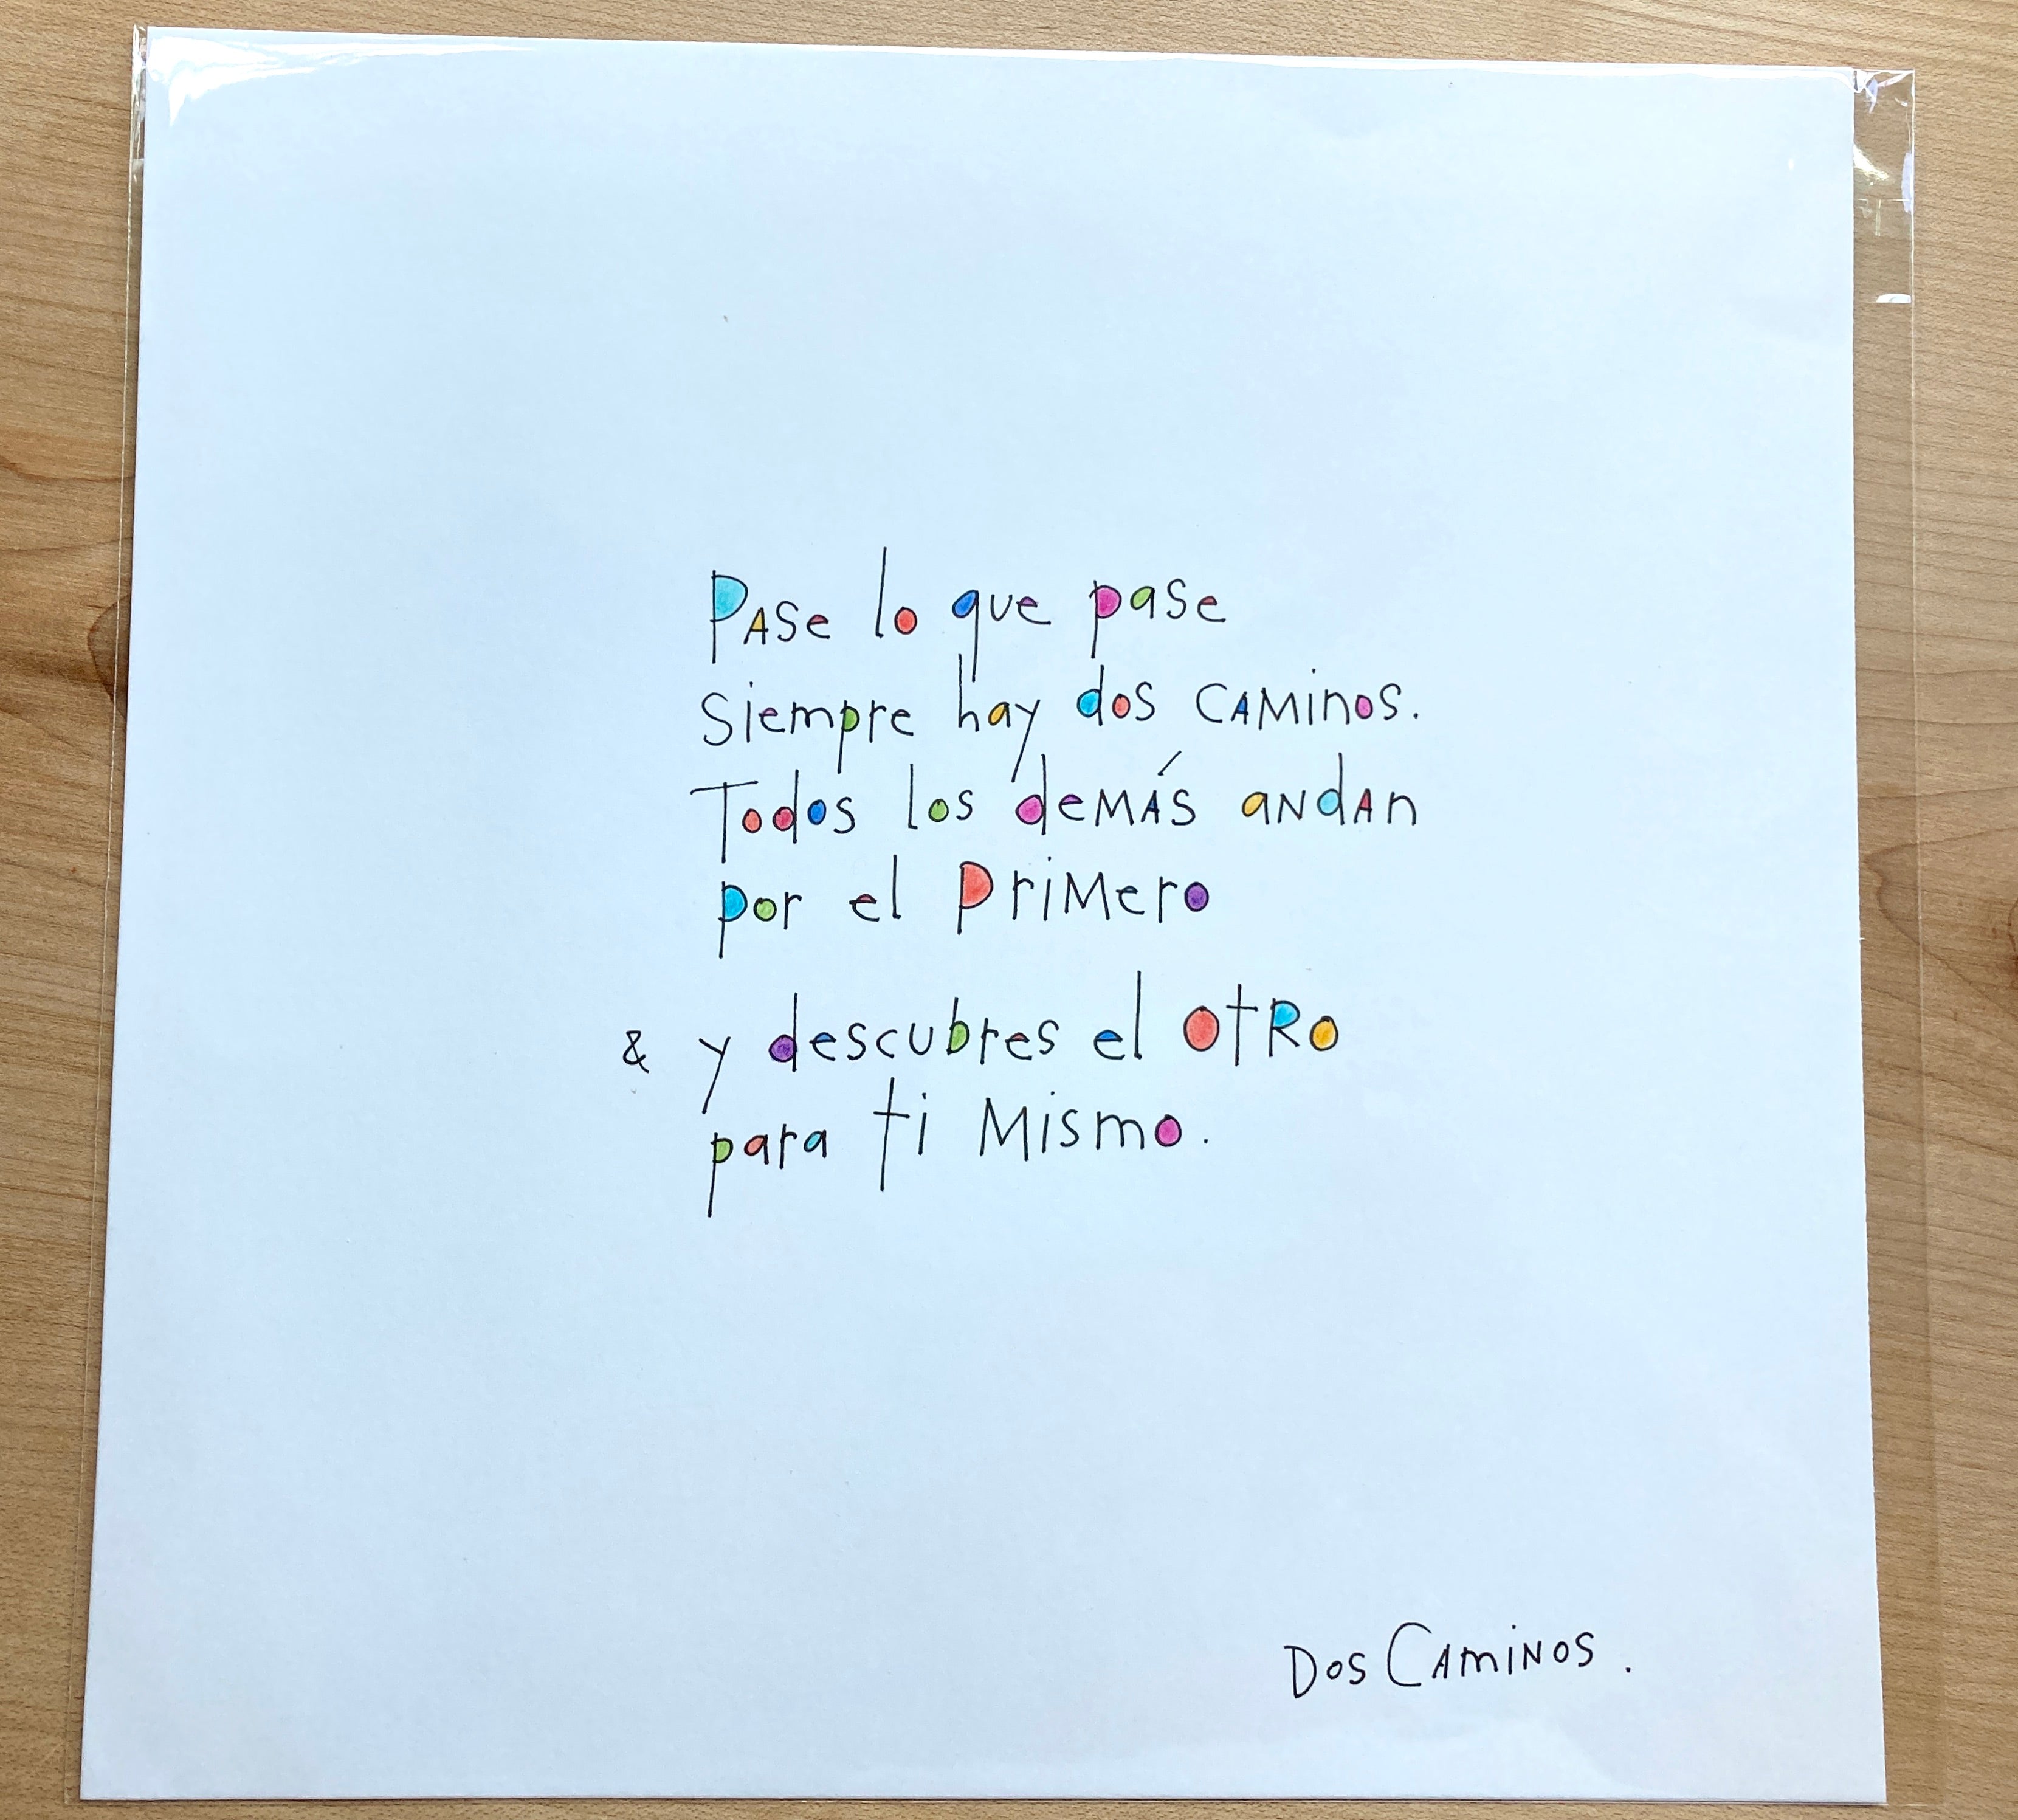 Pase lo que pase
siempre hay dos caminos.
Todos los demás andan
por el primero
& y descubres el otro
para ti mismo.
Dos Caminos.